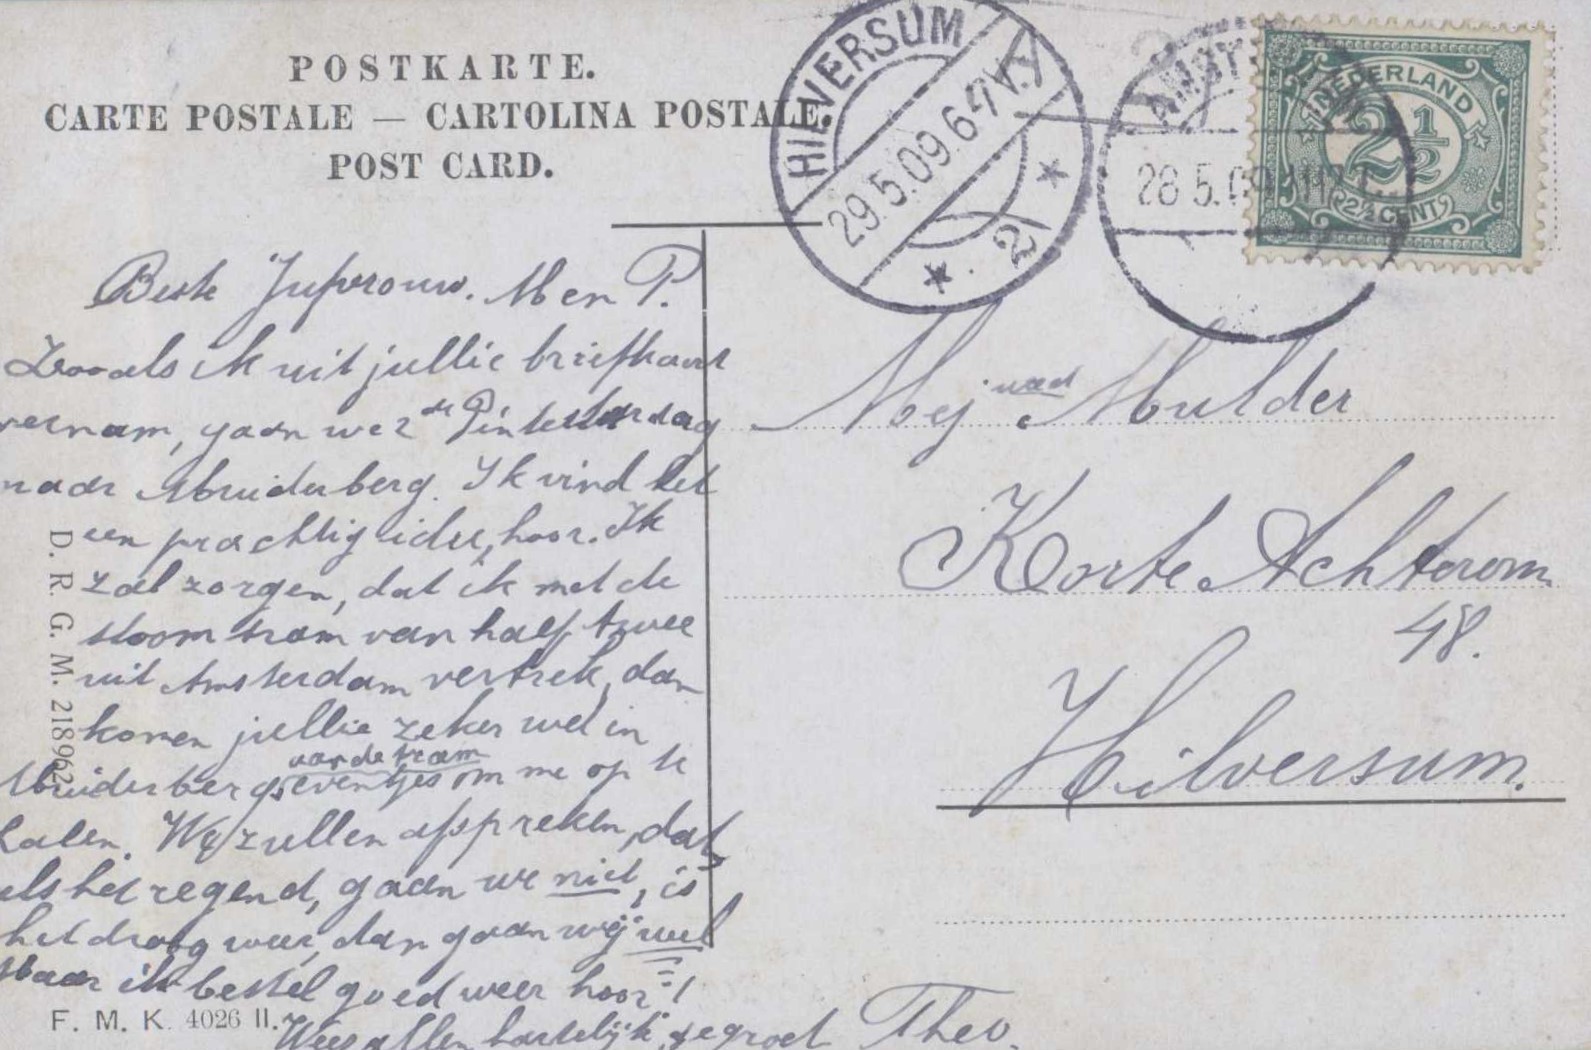 POSTKARTE.
CARTE POSTALE — CARTOLINA POSTALE.
POST CARD.
HILVERSUM
29.5.09.6-7V.
2
28 5.09
NEDERLAND
2½
2½ CENT
Beste Jufvrouw. M en P.
Zooals ik uit jullie briefkaart
vernam, gaan we 2de Pinksterdag
naar Muiderberg. Ik vind het
een prachtig idee, hoor. Ik
zal zorgen, dat ik met de
stoomtram van half twee
uit Amsterdam vertrek, dan
komen jullie zeker wel in
van de tram
Muiderberg eventjes om me op te
halen. Wij zullen afspreken, dat
als het regend, gaan we niet, is
het droog weer, dan gaan wij wel
Maar ik bestel goed weer hoor!
Wees allen hartelijk gegroet Theo.
Mej Mulder
Korte Achterom
48.
Hilversum.
D. R. G. M. 218962
F. M. K. 4026 II.